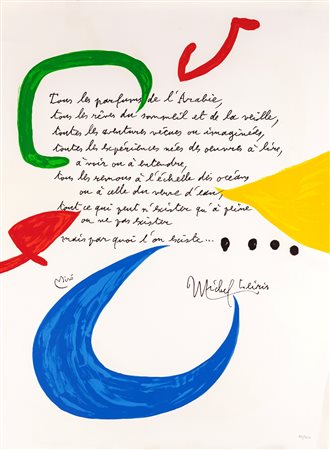 Tous les parfums de l'Arabie,
tous les rêves du sommeil et de la veille,
toutes les aventures vécues ou imaginées,
toutes les expériences nées des œuvres à lire,
à voir ou à entendre,
tous les remous à l'échelle des océans
ou à celle du verre d'eau,
tout ce qui peut n'exister qu'à peine
ou ne pas exister
mais par quoi l'on existe...
Miró
Michel Leiris